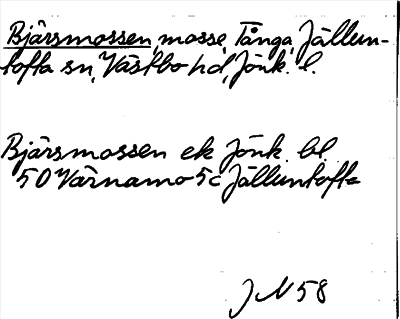 Bjärsmossen, mosse, Tånga, Jällun-
tofta sn, Västbo hd, Jönk. l.
Bjärsmossen ek Jönk. bl.
50 Värnamo 5c Jälluntofta
J N 58